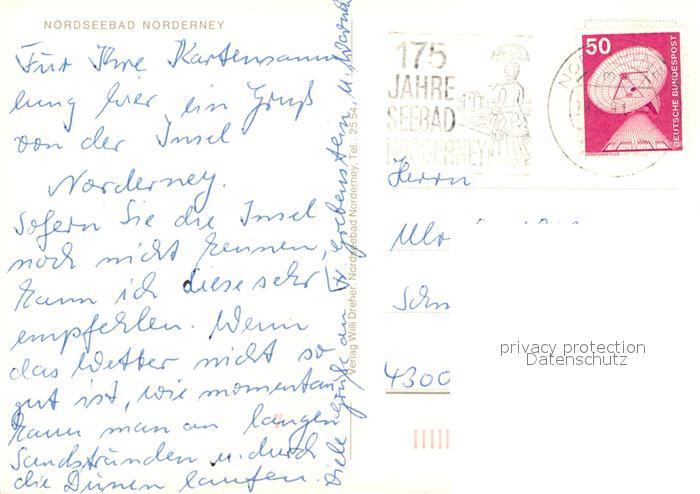 NORDSEEBAD NORDERNEY
Für Ihre Kartensamm
lung hier ein Gruß
von der Insel
Norderney.
Sofern Sie die Insel
noch nicht kennen,
kann ich diese sehr
empfehlen. Wenn
das Wetter nicht so
gut ist, wie momentan,
kann man an langen
Sandstränden u. durch
die Dünen laufen.
Viele Grüße an H. Grebenstein u.
Verlag Willi Dreher, Nordseebad Norderney, Tel. 2554
175
JAHRE
SEEBAD
NORDERNEY
50
DEUTSCHE BUNDESPOST
ERDEFUNKSTELLE
Herrn
4300
privacy protection
Datenschutz